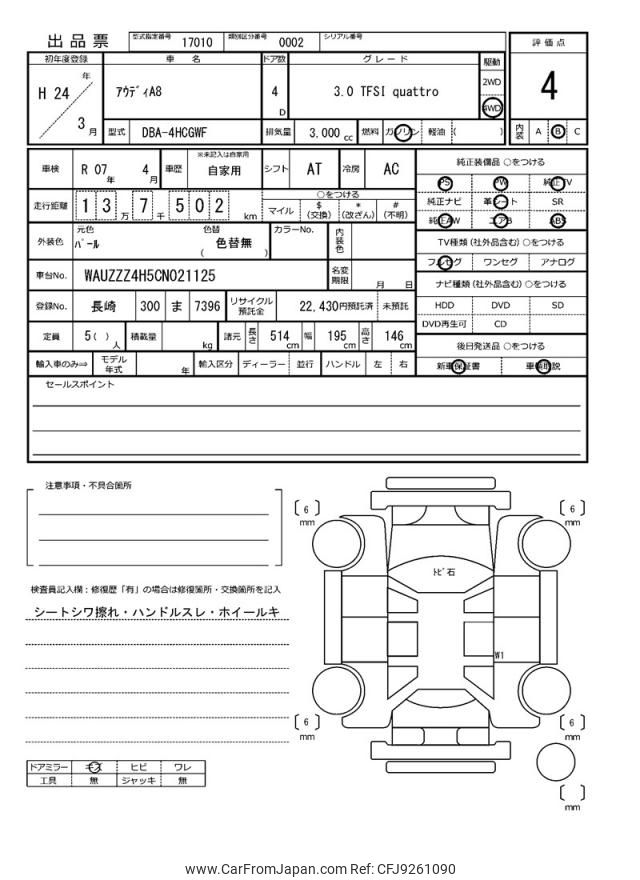 出品票 型式指定番号 17010 類別区分番号 0002 シリアル番号
評価点
4
初年度登録 車名 ドア数 グレード 駆動
H 24 年 3 月 アウディA8 4 D 3.0 TFSI quattro 2WD 4WD
型式 DBA-4HCGWF 排気量 3,000 cc 燃料 ガソリン 軽油 ( )
内装 A B C
車検 R 07 年 4 月 車歴 ※未記入は自家用 自家用 シフト AT 冷房 AC
走行距離 1 3 万 7 千 5 0 2 km ○をつける
マイル $(交換) *(改ざん) #(不明)
外装色 元色 パール 色替 色替無 ( ) カラーNo. 内装色
車台No. WAUZZZ4H5CN021125 名変期限 月 日
登録No. 長崎 300 ま 7396 リサイクル預託金 22,430円預託済 未預託
定員 5( )人 積載量 kg 諸元 長さ 514 cm 幅 195 cm 高さ 146 cm
輸入車のみ⇒ モデル年式 年 輸入区分 ディーラー 並行 ハンドル 左 右
純正装備品 ○をつける
PS PW 純正TV
純正ナビ 革シート SR
純正AW エアB ABS
TV種類(社外品含む)○をつける
フルセグ ワンセグ アナログ
ナビ種類(社外品含む)○をつける
HDD DVD SD
DVD再生可 CD
後日発送品 ○をつける
新車保証書 車輌取説
セールスポイント
注意事項・不具合箇所
検査員記入欄:修復歴「有」の場合は修復箇所・交換箇所を記入
シートシワ擦れ・ハンドルスレ・ホイールキ
ドアミラー キズ ヒビ ワレ
工具 無 ジャッキ 無
[ 6 ] mm
[ 6 ] mm
トビ石
W1
[ 6 ] mm
[ 6 ] mm
[ ] mm
www.CarFromJapan.com Ref: CFJ9261090